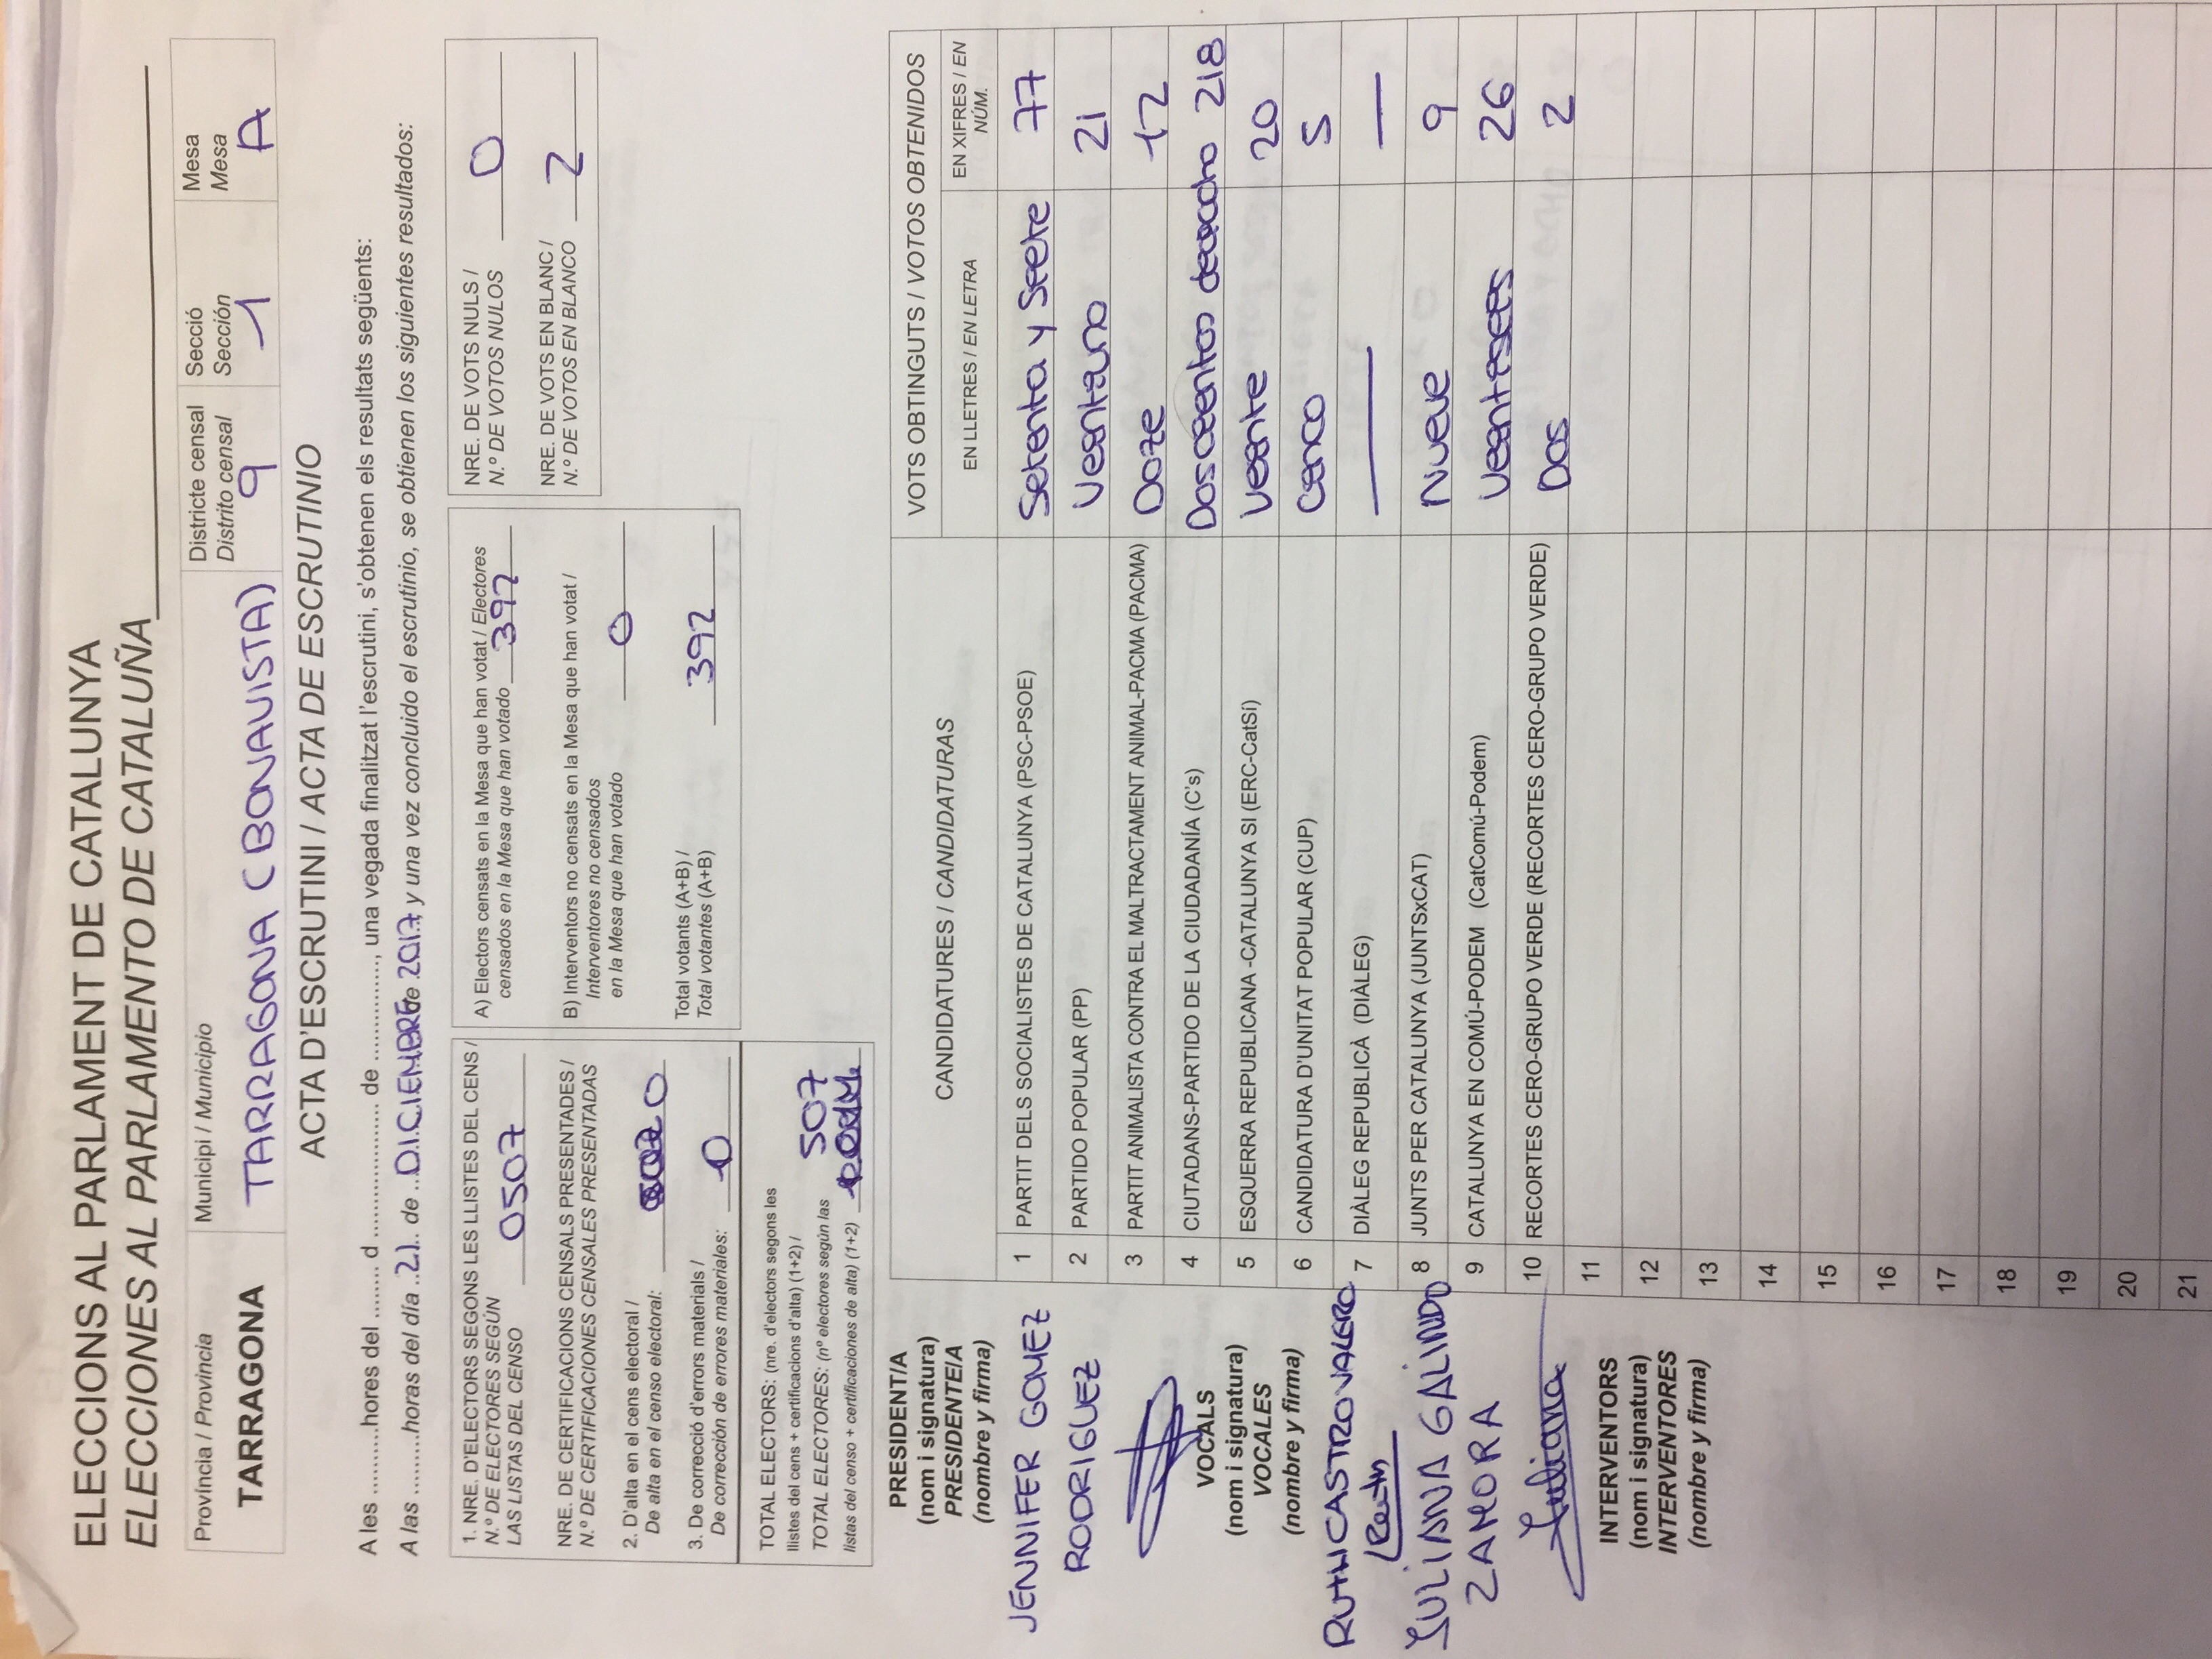 ELECCIONS AL PARLAMENT DE CATALUNYA
ELECCIONES AL PARLAMENTO DE CATALUÑA
Província / Provincia
TARRAGONA
Municipi / Municipio
TARRAGONA (BONAVISTA)
Districte censal
Distrito censal
9
Secció
Sección
1
Mesa
Mesa
A
ACTA D'ESCRUTINI / ACTA DE ESCRUTINIO
A les ..........hores del ........ d .................... de ..............., una vegada finalitzat l'escrutini, s'obtenen els resultats següents:
A las .........horas del día ..21.. de ..DICIEMBRE de 2017, y una vez concluido el escrutinio, se obtienen los siguientes resultados:
1. NRE. D'ELECTORS SEGONS LES LLISTES DEL CENS /
N.º DE ELECTORES SEGÚN
LAS LISTAS DEL CENSO 0507
NRE. DE CERTIFICACIONS CENSALS PRESENTADES /
N.º DE CERTIFICACIONES CENSALES PRESENTADAS
2. D'alta en el cens electoral /
De alta en el censo electoral: 0
3. De correcció d'errors materials /
De corrección de errores materiales: 0
TOTAL ELECTORS: (nre. d'electors segons les
llistes del cens + certificacions d'alta) (1+2) /
TOTAL ELECTORES: (nº electores según las 507
listas del censo + certificaciones de alta) (1+2)
A) Electors censats en la Mesa que han votat / Electores
censados en la Mesa que han votado 392
B) Interventors no censats en la Mesa que han votat /
Interventores no censados
en la Mesa que han votado 0
Total votants (A+B) /
Total votantes (A+B) 392
NRE. DE VOTS NULS /
N.º DE VOTOS NULOS 0
NRE. DE VOTS EN BLANC /
N.º DE VOTOS EN BLANCO 2
PRESIDENT/A
(nom i signatura)
PRESIDENTE/A
(nombre y firma)
JENNIFER GOMEZ
RODRIGUEZ
VOCALS
(nom i signatura)
VOCALES
(nombre y firma)
RUTH CASTRO VALERO
Ruth
JULIANA GALINDO
ZAMORA
Juliana
INTERVENTORS
(nom i signatura)
INTERVENTORES
(nombre y firma)
CANDIDATURES / CANDIDATURAS
VOTS OBTINGUTS / VOTOS OBTENIDOS
EN LLETRES / EN LETRA
EN XIFRES / EN
NÚM.
1 PARTIT DELS SOCIALISTES DE CATALUNYA (PSC-PSOE) Setenta y Siete 77
2 PARTIDO POPULAR (PP) Veintiuno 21
3 PARTIT ANIMALISTA CONTRA EL MALTRACTAMENT ANIMAL-PACMA (PACMA) Doze 12
4 CIUTADANS-PARTIDO DE LA CIUDADANÍA (C's) Doscientos 218
5 ESQUERRA REPUBLICANA -CATALUNYA SI (ERC-CatSí) Veinte 20
6 CANDIDATURA D'UNITAT POPULAR (CUP) Cinco 5
7 DIÀLEG REPUBLICÀ (DIÀLEG) — —
8 JUNTS PER CATALUNYA (JUNTSxCAT) Nueve 9
9 CATALUNYA EN COMÚ-PODEM (CatComú-Podem) Veintiseis 26
10 RECORTES CERO-GRUPO VERDE (RECORTES CERO-GRUPO VERDE) Dos 2
11
12
13
14
15
16
17
18
19
20
21